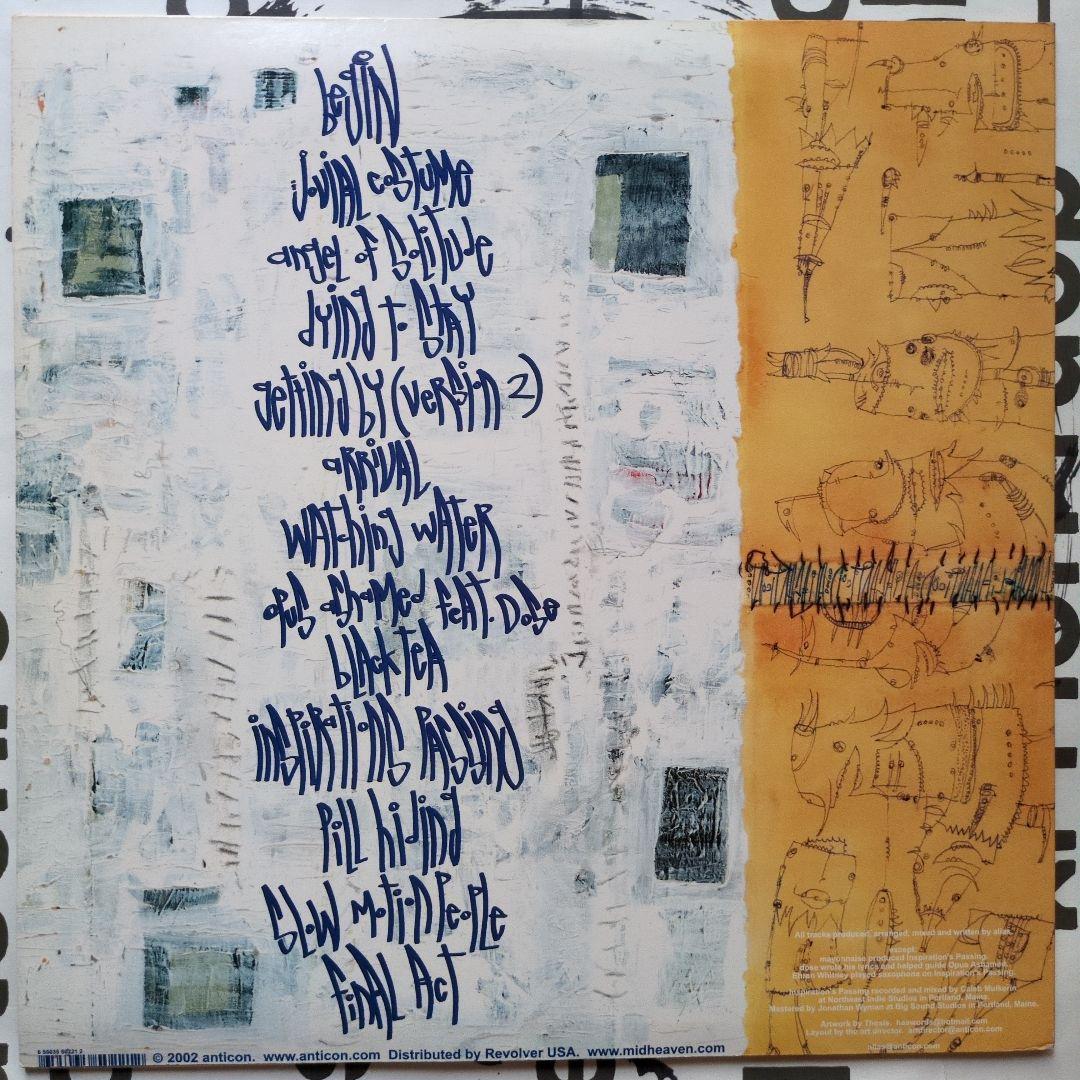 begin
jovial costume
angel of solitude
dying to stay
getting by (version 2)
arrival
watching water
opus ashamed feat. Dose
black tea
inspirations passing
pill hiding
slow motion people
final act
All tracks produced, arranged, mixed and written by alias.
except
mayonnaise produced Inspiration's Passing.
dose wrote his lyrics and helped guide Opus Ashamed.
Ehren Whitney played saxophone on Inspiration's Passing.
Inspiration's Passing recorded and mixed by Caleb Mulkerin
at Northeast Indie Studios in Portland, Maine.
Mastered by Jonathan Wyman at Big Sound Studios in Portland, Maine.
Artwork by Thesis.
Layout by the art director. amdirector@anticon.com
alias@anticon.com
© 2002 anticon. www.anticon.com Distributed by Revolver USA. www.midheaven.com